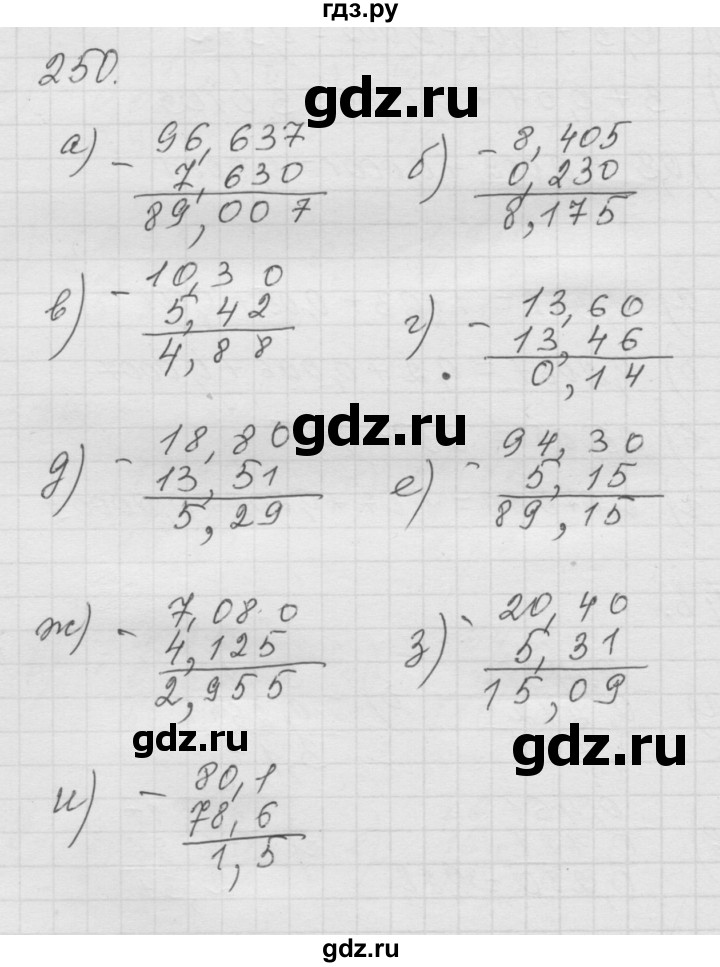 гдз.ру
250.
gdz.ru
а) - 96,637
7,630
89,007
б) - 8,405
0,230
8,175
в) - 10,30
5,42
4,88
г) - 13,60
13,46
0,14
gdz.ru
д) - 18,80
13,51
5,29
е) - 94,30
5,15
89,15
ж) - 7,080
4,125
2,955
з) - 20,40
5,31
15,09
gdz.ru
gdz.ru
и) - 80,1
78,6
1,5
gdz.ru